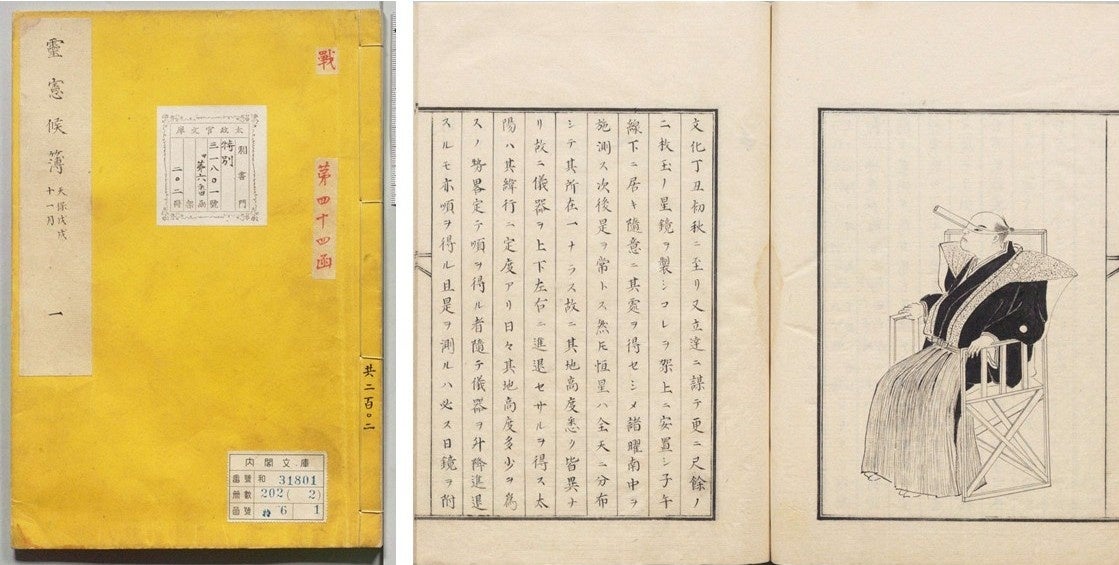 靈憲候簿
天保戊戌
十一月
一
戰
第四十四函
太政官文庫
和書門
特別
三一八〇一號
二〇二冊
共二百〇二
内閣文庫
番號 和 31801
冊數 202(2)
函號 特 6 1
文化丁丑初秋ニ至リ又立達ニ謀テ更ニ尺餘ノ
二枚玉ノ星鏡ヲ製シコレヲ架上ニ安置シ子午
線下ニ居キ隨意ニ其處ヲ得セシメ諸曜南中ヲ
施測ス次後是ヲ常トス然𪜈恒星ハ全天ニ分布
シテ其所在一ナラス故ニ其地高度悉ク皆異ナ
リ故ニ儀器ヲ上下左右ニ進退セサルヲ得ス太
陽ハ其緯行ニ定度アリ日々其地高度多少ヲ為
スノ勢畧定テ順ヲ得ル者隨テ儀器ヲ升降進退
スルモ亦順ヲ得ル且是ヲ測ルハ必ス日鏡ヲ附